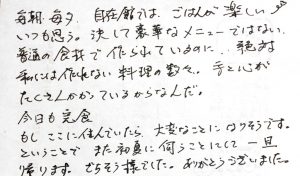 毎朝・毎夕、自在館では、ごはんが楽しい
いつも思う。決して豪華なメニューではない、
普通の食材で作られているのに、絶対
私には作れない料理の数々。手と心が
たくさんかかっているからなんだ。
今日も完食
もしここに住んでいたら、大変なことになりそうです。
ということで また初夏に伺うことにして 一旦
帰ります。ごちそう様でした。ありがとうございました。